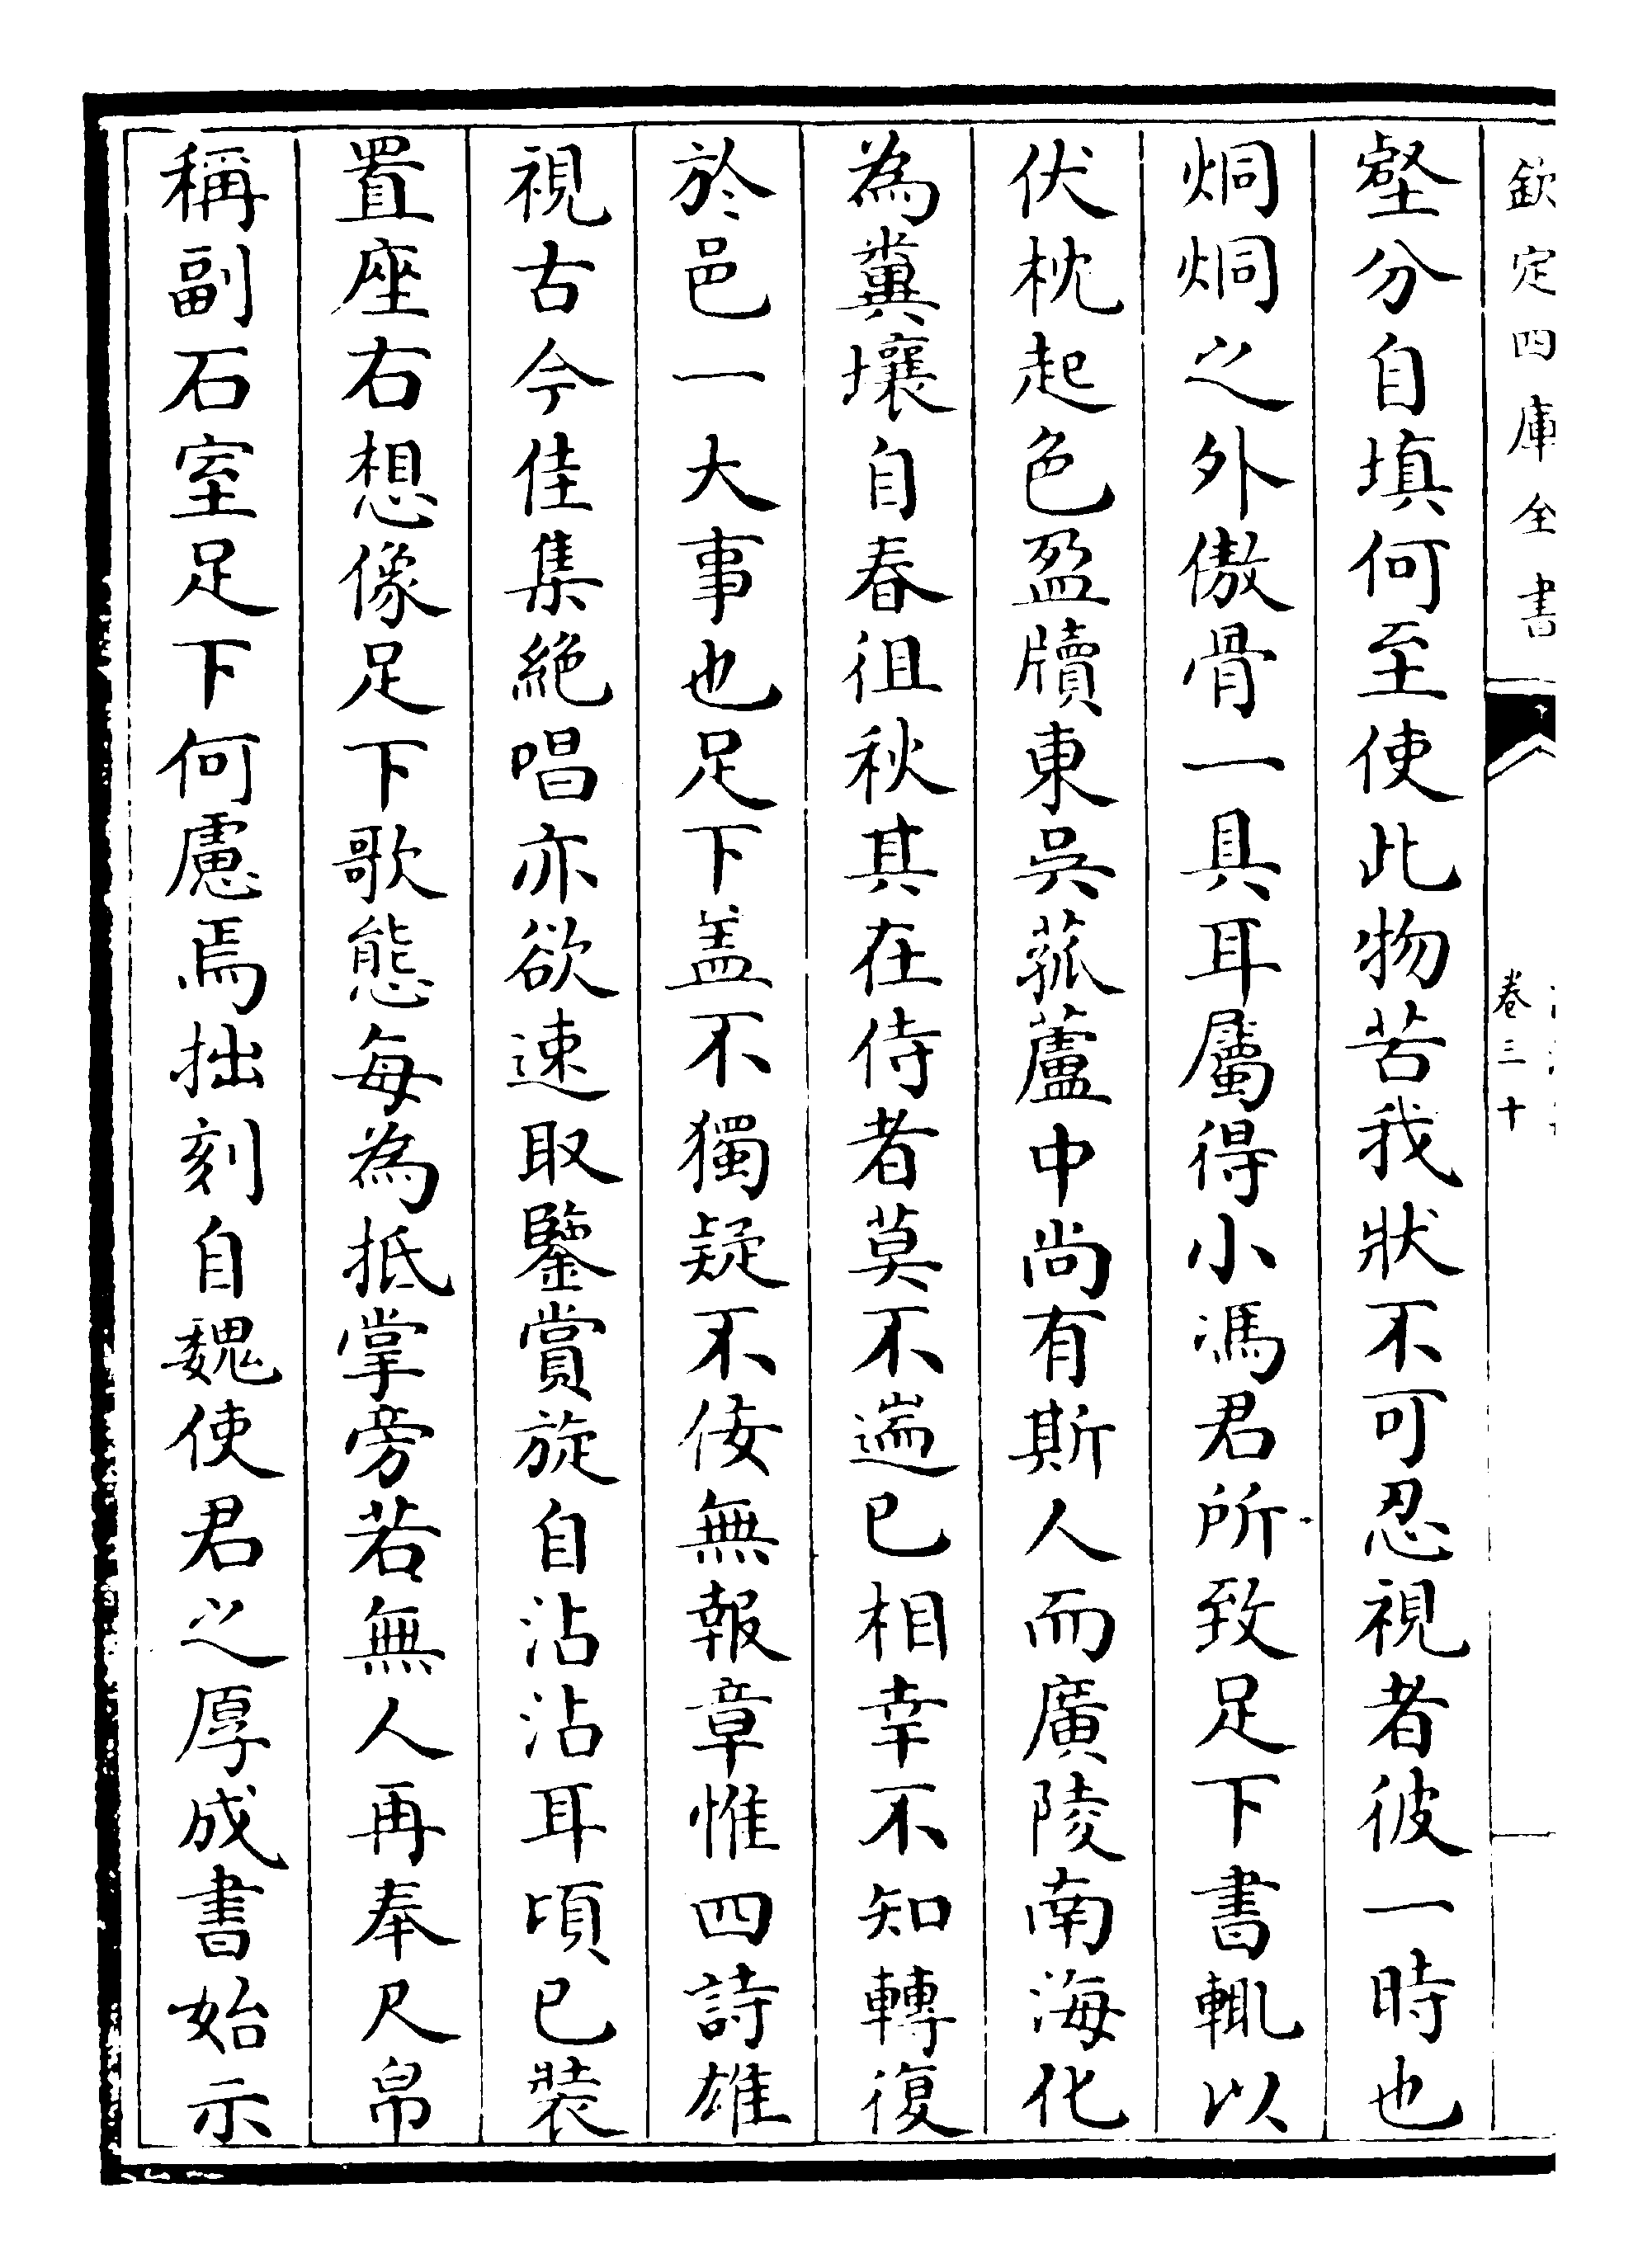 欽定四庫全書
卷三十
壑分自填何至使此物苦我狀不可忍視者彼一時也
炯炯之外傲骨一具耳屬得小馮君所致足下書輒以
伏枕起色盈牘東吳菰蘆中尚有斯人而廣陵南海化
為糞壤自春徂秋其在侍者莫不遄已相幸不知轉復
於邑一大事也足下盖不獨疑不佞無報章惟四詩雄
視古今佳集絶唱亦欲速取鑒賞旋自沾沾耳頃已裝
置座右想像足下歌態每為抵掌旁若無人再奉尺帛
稱副石室足下何慮焉拙刻自魏使君之厚成書始示